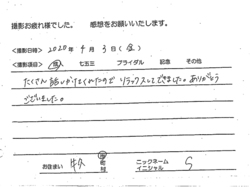 撮影お疲れ様でした。 感想をお願いいたします。
<撮影日時> 2020 年 4 月 3 日 (金)
<撮影項目> 七五三 ブライダル 記念 その他
たくさん話しかけてくれたので リラックスしてできました。ありがとう
ございました。
お住まい 市町村 ニックネーム イニシャル S